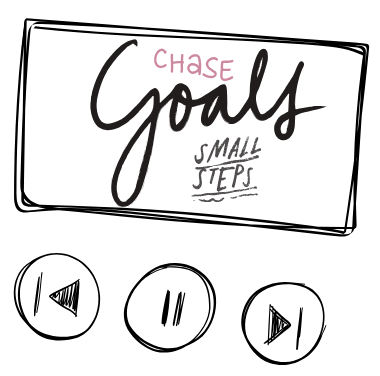 CHASE
Goals
SMALL
STEPS